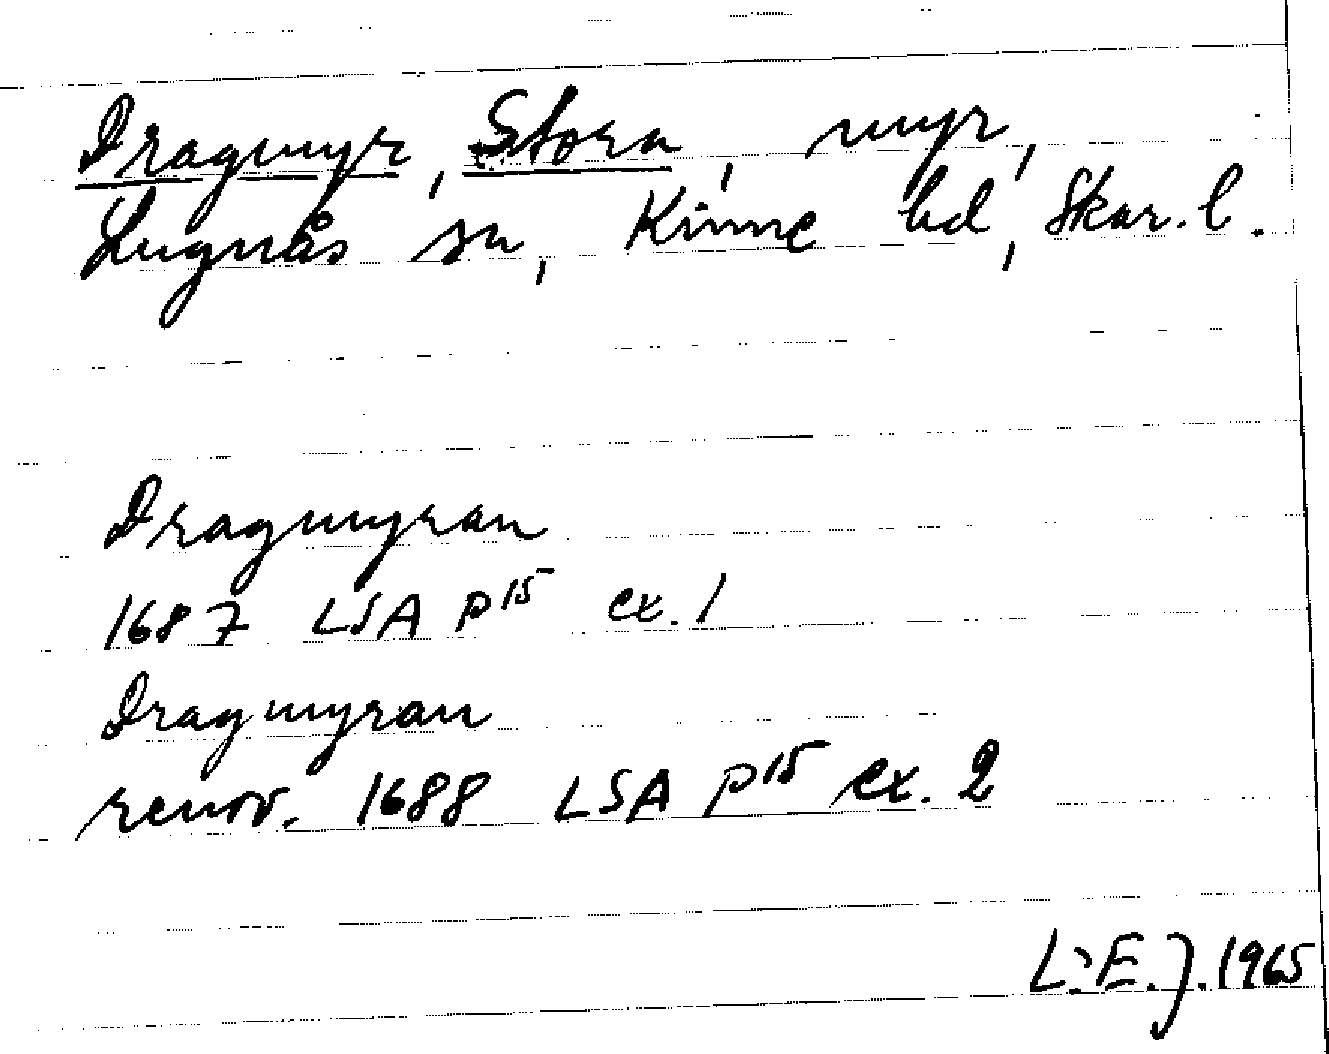 Dragmyr, Stora, myr,
Lugnås sn, Kinne hd, Skar. l.
Dragmyran
1687 LSA P15 ex. 1
Dragmyran
renov. 1688 LSA P15 ex. 2
L.E.J. 1965